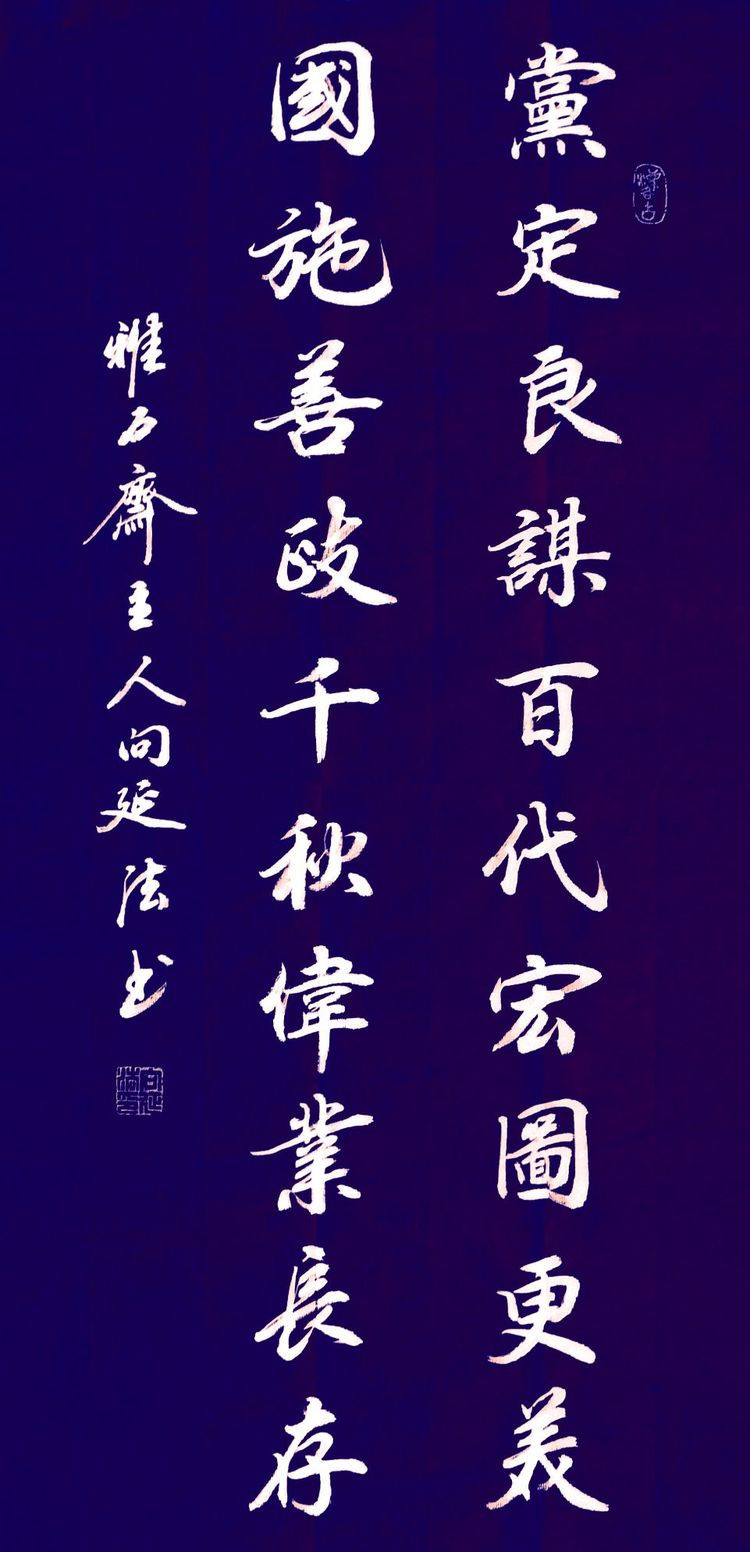 黨定良謀百代宏圖更美
國施善政千秋偉業長存
雅石齋主人向延法书